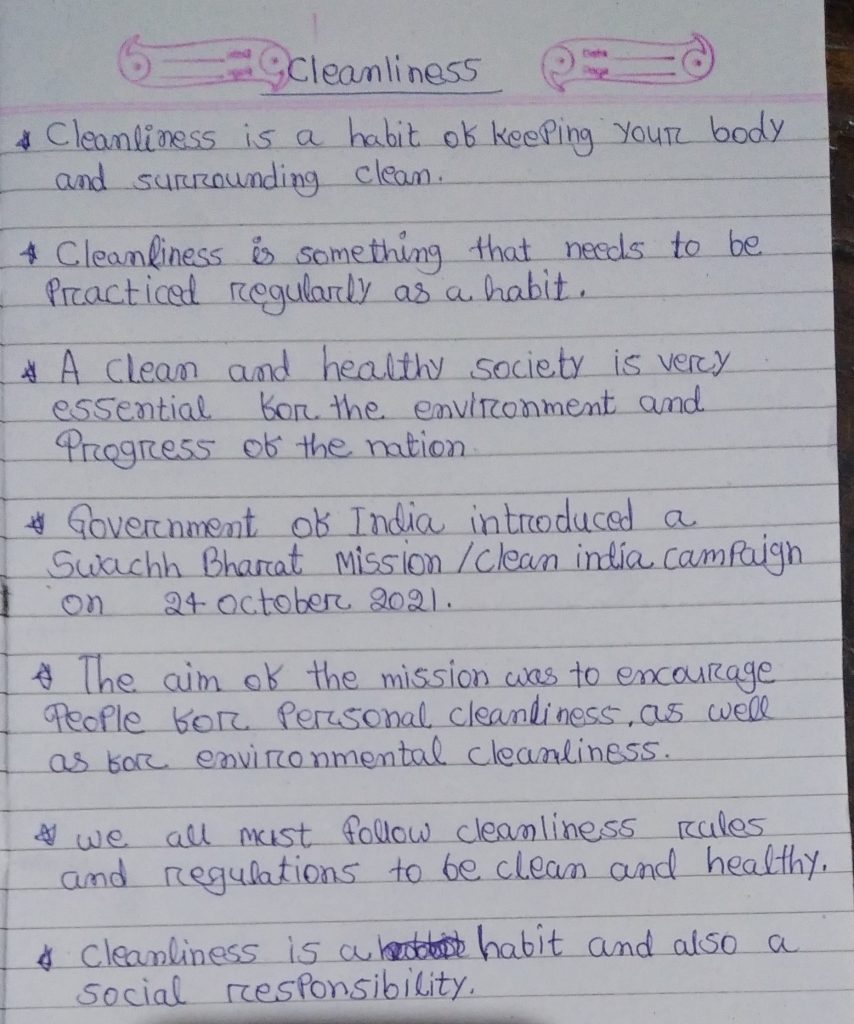 Cleanliness
Cleanliness is a habit of keeping your body
and surrounding clean.
Cleanliness is something that needs to be
Practiced regularly as a habit.
A clean and healthy society is very
essential for the environment and
Progress of the nation
Government of India introduced a
Swachh Bharat Mission / Clean india campaign
on 24 october 2021.
The aim of the mission was to encourage
People for Personal cleanliness, as well
as for environmental cleanliness.
we all must follow cleanliness rules
and regulations to be clean and healthy.
Cleanliness is a habit and also a
social responsibility.